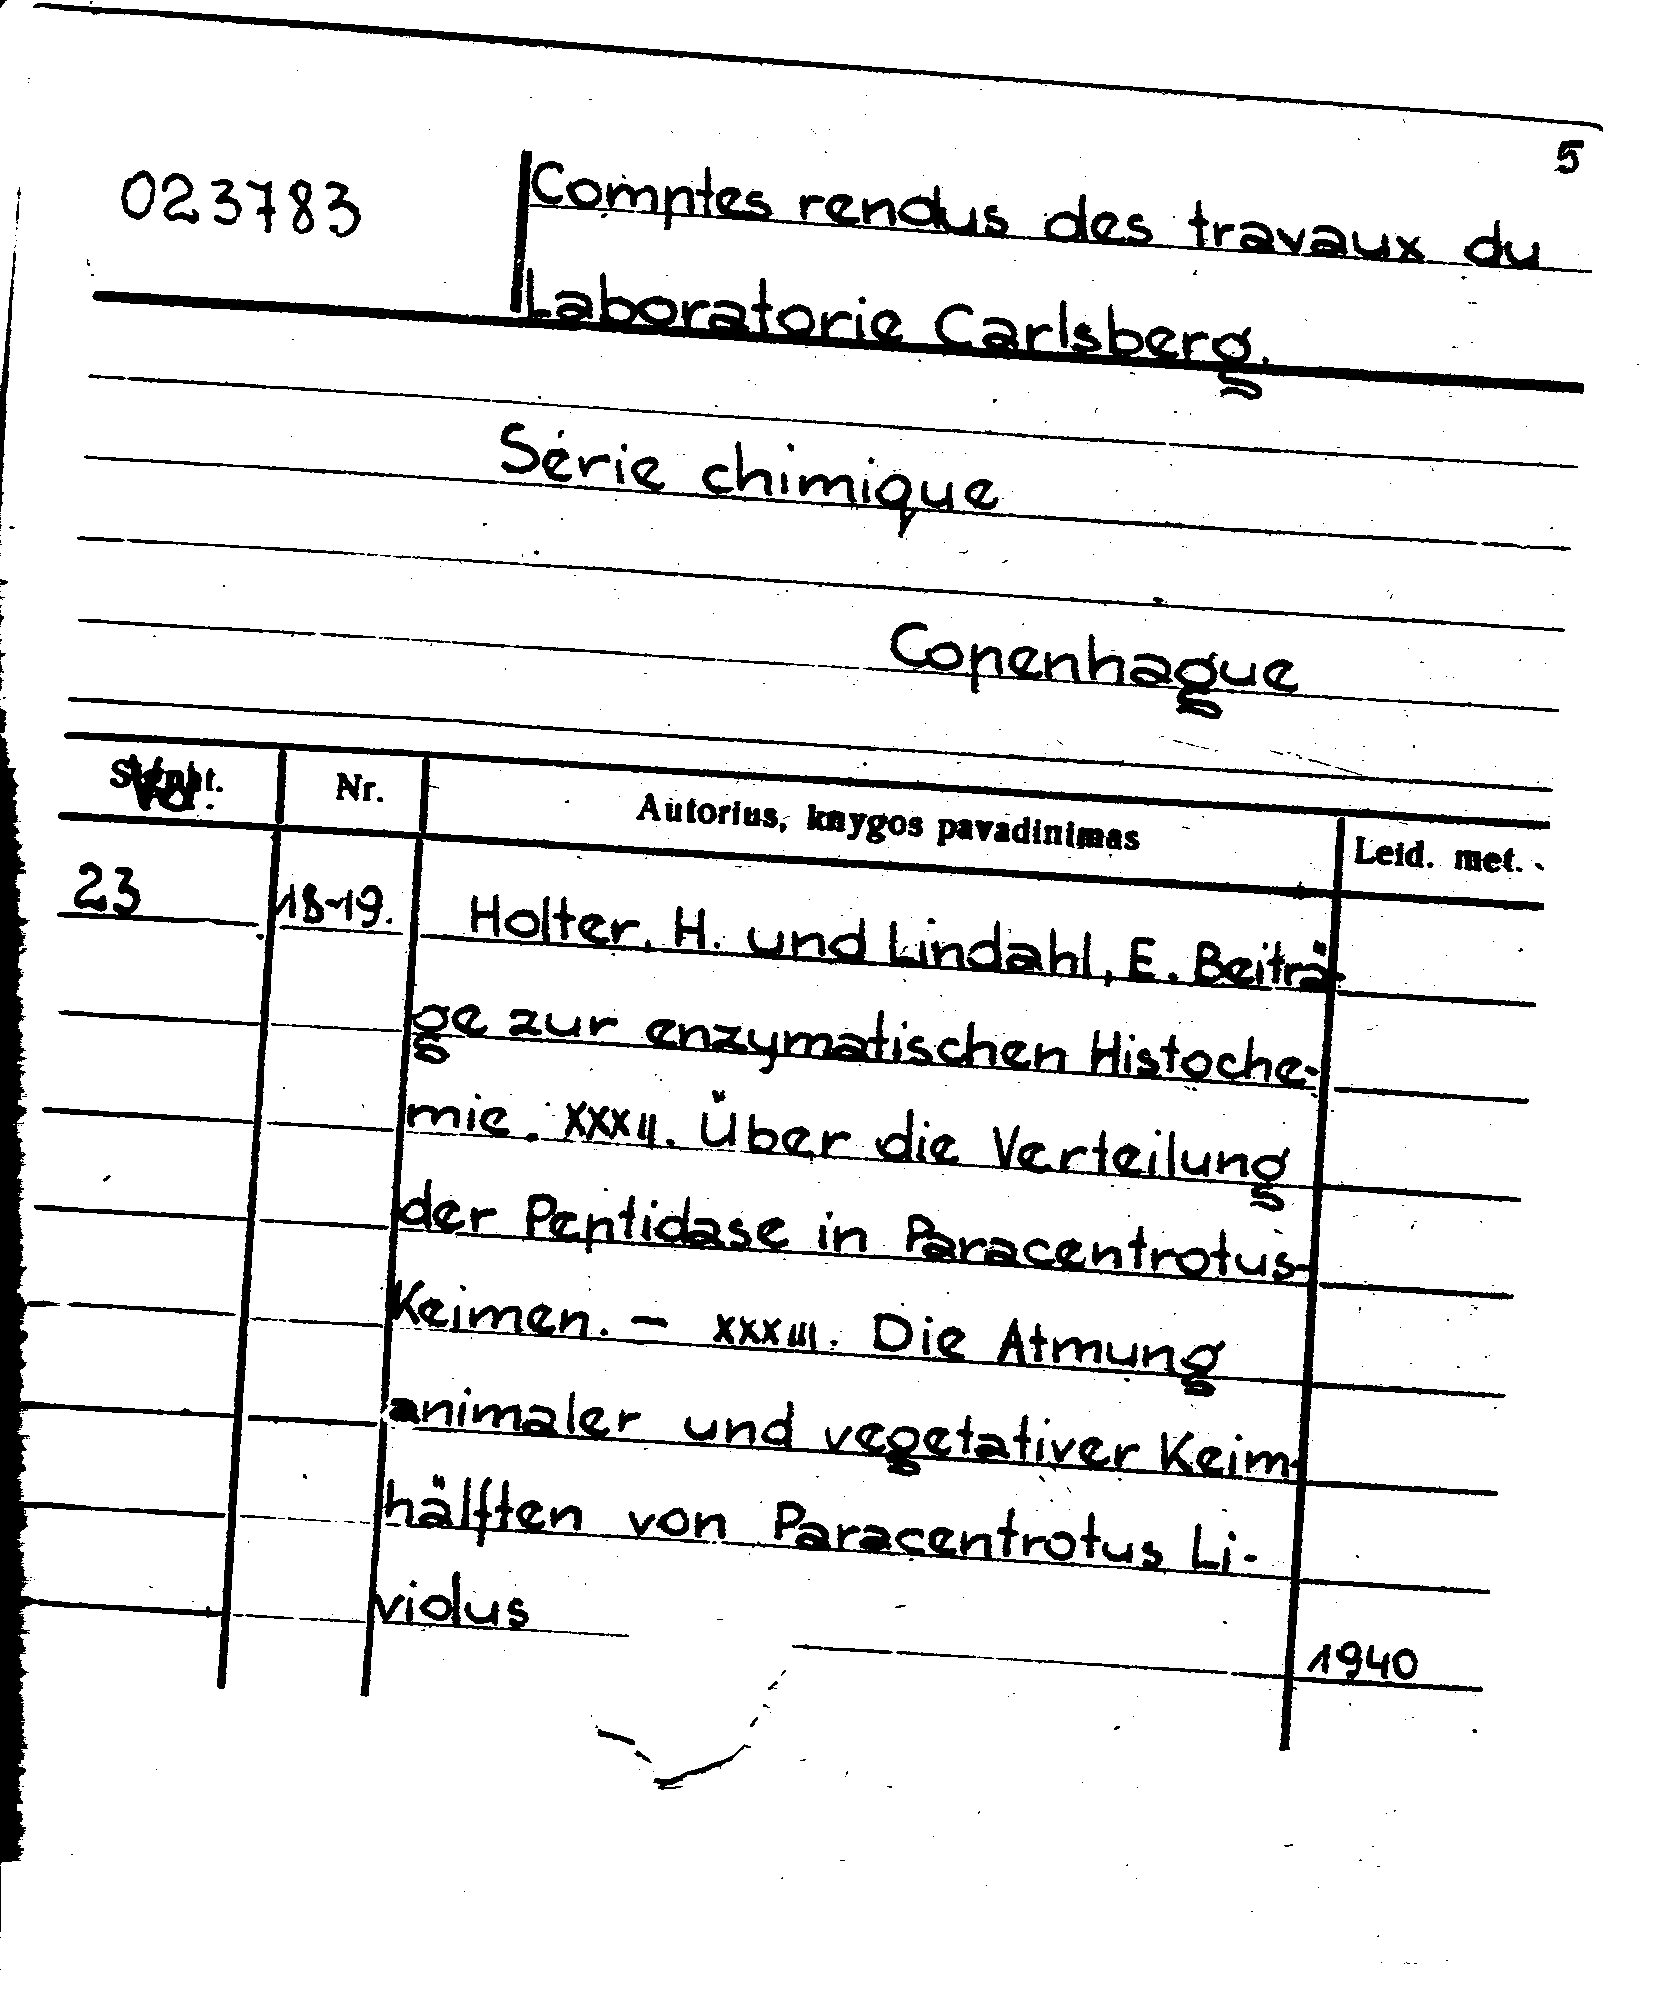 5
023783
Comptes rendus des travaux du
Laboratorie Carlsberg.
Série chimique
Copenhague
Vol. Nr. Autorius, knygos pavadinimas Leid. met.
23 18-19. Holter, H. und Lindahl, E. Beiträ-
ge zur enzymatischen Histoche-
mie. XXXII. Über die Verteilung
der Peptidase in Paracentrotus-
Keimen. – XXXIII. Die Atmung
animaler und vegetativer Keim-
hälften von Paracentrotus Li-
violus
1940